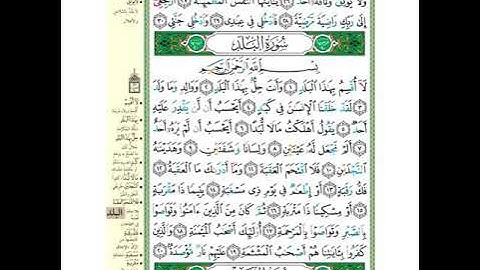 وَلَا يُوثِقُ وَثَاقَهُۥٓ أَحَدٌ ٢٦ يَٰٓأَيَّتُهَا ٱلنَّفْسُ ٱلْمُطْمَئِنَّةُ ٢٧ ٱرْجِعِىٓ
إِلَىٰ رَبِّكِ رَاضِيَةً مَّرْضِيَّةً ٢٨ فَٱدْخُلِى فِى عِبَٰدِى ٢٩ وَٱدْخُلِى جَنَّتِى ٣٠
سُورَةُ ٱلْبَلَدِ
بِسْمِ ٱللَّهِ ٱلرَّحْمَٰنِ ٱلرَّحِيمِ
لَآ أُقْسِمُ بِهَٰذَا ٱلْبَلَدِ ١ وَأَنتَ حِلٌّۢ بِهَٰذَا ٱلْبَلَدِ ٢ وَوَالِدٍ وَمَا وَلَدَ
٣ لَقَدْ خَلَقْنَا ٱلْإِنسَٰنَ فِى كَبَدٍ ٤ أَيَحْسَبُ أَن لَّن يَقْدِرَ عَلَيْهِ
أَحَدٌ ٥ يَقُولُ أَهْلَكْتُ مَالًا لُّبَدًا ٦ أَيَحْسَبُ أَن لَّمْ يَرَهُۥٓ أَحَدٌ
٧ أَلَمْ نَجْعَل لَّهُۥ عَيْنَيْنِ ٨ وَلِسَانًا وَشَفَتَيْنِ ٩ وَهَدَيْنَٰهُ
ٱلنَّجْدَيْنِ ١٠ فَلَا ٱقْتَحَمَ ٱلْعَقَبَةَ ١١ وَمَآ أَدْرَىٰكَ مَا ٱلْعَقَبَةُ ١٢
فَكُّ رَقَبَةٍ ١٣ أَوْ إِطْعَٰمٌ فِى يَوْمٍ ذِى مَسْغَبَةٍ ١٤ يَتِيمًا ذَا مَقْرَبَةٍ
١٥ أَوْ مِسْكِينًا ذَا مَتْرَبَةٍ ١٦ ثُمَّ كَانَ مِنَ ٱلَّذِينَ ءَامَنُوا۟ وَتَوَاصَوْا۟
بِٱلصَّبْرِ وَتَوَاصَوْا۟ بِٱلْمَرْحَمَةِ ١٧ أُو۟لَٰٓئِكَ أَصْحَٰبُ ٱلْمَيْمَنَةِ ١٨ وَٱلَّذِينَ
كَفَرُوا۟ بِـَٔايَٰتِنَا هُمْ أَصْحَٰبُ ٱلْمَشْـَٔمَةِ ١٩ عَلَيْهِمْ نَارٌ مُّؤْصَدَةٌۢ ٢٠
البلد